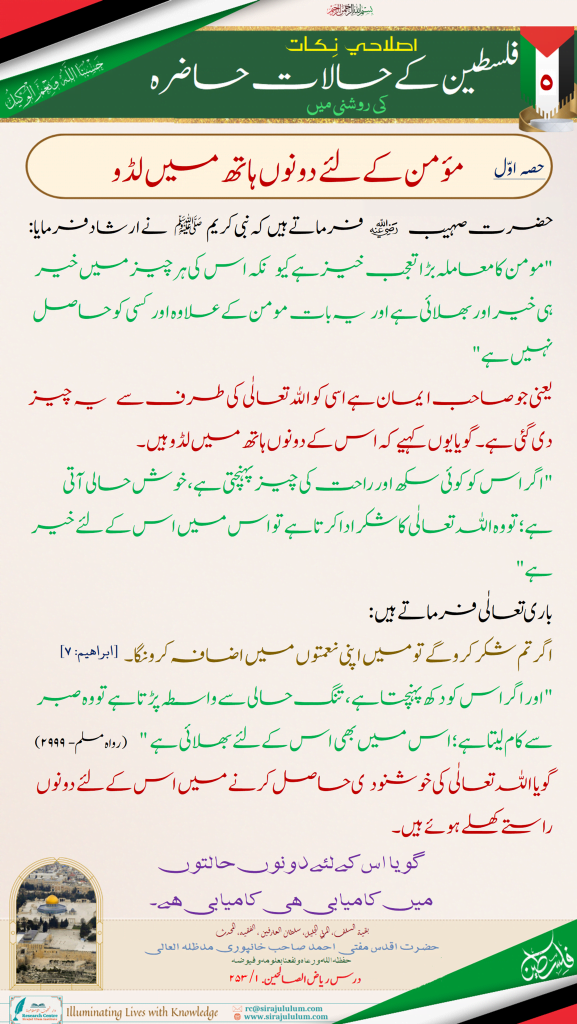 بسم اللہ الرحمن الرحیم
اصلاحي نکات
فلسطین کے حالات حاضرہ
کی روشنی میں
۵
حسبنا اللہ ونعم الوکیل
حصہ اوّل
مؤمن کے لئے دونوں ہاتھ میں لڈو
حضرت صہیب رضی اللہ عنہ فرماتے ہیں کہ نبی کریم ﷺ نے ارشاد فرمایا:
"مومن کا معاملہ بڑا تعجب خیز ہے کیو نکہ اس کی ہر چیز میں خیر
ہی خیر اور بھلائی ہے اور یہ بات مومن کے علاوہ اور کسی کو حاصل
نہیں ہے"
یعنی جو صاحب ایمان ہے اسی کو اللہ تعالٰی کی طرف سے یہ چیز
دی گئی ہے۔ گویا یوں کہیے کہ اس کے دونوں ہاتھ میں لڈو ہیں۔
"اگر اس کو کوئی سکھ اور راحت کی چیز پہنچتی ہے، خوش حالی آتی
ہے؛ تو وہ اللہ تعالٰی کا شکر ادا کرتا ہے تو اس میں اس کے لئے خیر
ہے"
باری تعالٰی فرماتے ہیں:
اگر تم شکر کروگے تو میں اپنی نعمتوں میں اضافہ کرونگا۔ [ابراهیم: ۷]
"اور اگر اس کو دکھ پہنچتا ہے، تنگ حالی سے واسطہ پڑتا ہے تو وہ صبر
سے کام لیتا ہے؛ اس میں بھی اس کے لئے بھلائی ہے" (رواہ مسلم- ۲۹۹۹)
گویا اللہ تعالٰی کی خوشنودی حاصل کرنے میں اس کے لئے دونوں
راستے کھلے ہوئے ہیں۔
گویا اس کے لئے دونوں حالتوں
میں کامیابی هی کامیابی هے۔
حضرت اقدس مفتی احمد صاحب خانپوری مدظله العالی
حفظه الله ورعاه ونفعنا بعلومه وفيوضه
درس ریاض الصالحین. ۱/ ۲۵۳
فلسطین
Research Centre
Illuminating Lives with Knowledge
rc@sirajululum.com
www.sirajululum.com